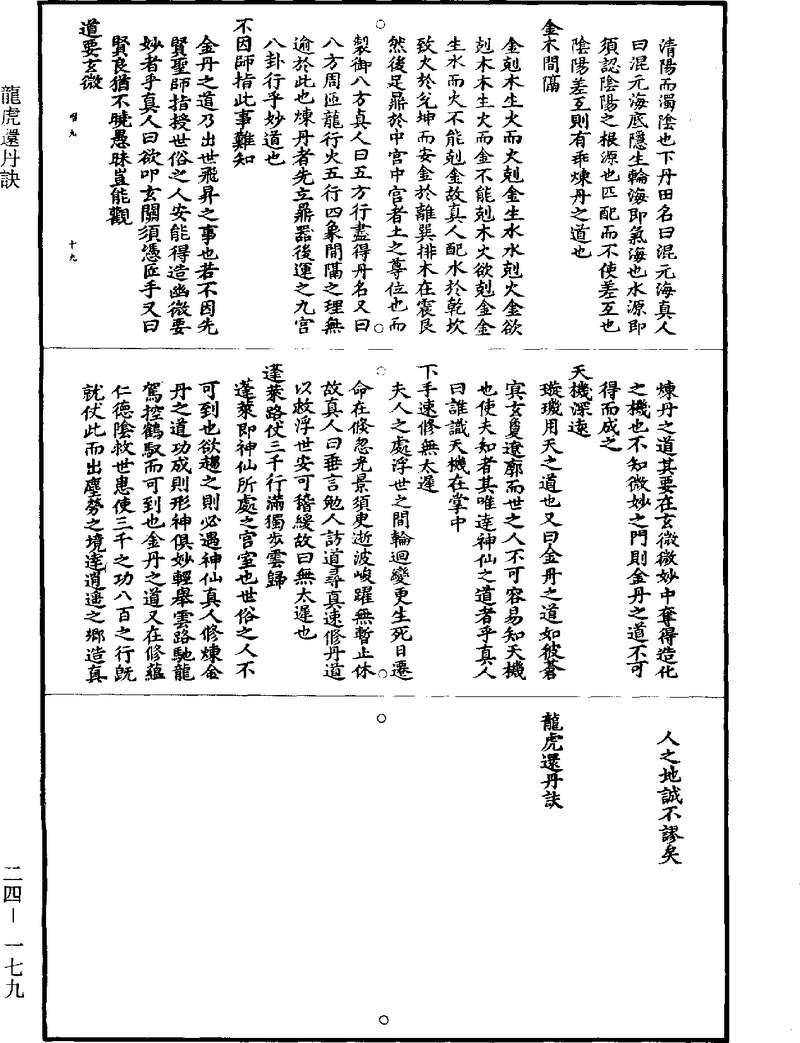 清陽而濁陰也下丹田名曰混元海真人
曰混元海底隱生輪海即氣海也水源即
須認陰陽之根源也匹配而不使差互也
陰陽差互則有乖煉丹之道也
金木間隔
金剋木生火而火剋金生水水剋火金欲
剋木木生火而金不能剋木火欲剋金金
生水而火不能剋金故真人配水於乾坎
致火於兌坤而安金於離巽排木在震艮
然後足鼎於中宮中宮者土之尊位也而
製御八方真人曰五方行盡得丹名又曰
八方周匝龍行火五行四象間隔之理無
逾於此也煉丹者先立鼎器後運之九宮
八卦行乎妙道也
不因師指此事難知
金丹之道乃出世飛昇之事也若不因先
賢聖師指授世俗之人安能得造幽微要
妙者乎真人曰欲叩玄關須憑匠手又曰
賢良猶不曉愚昧豈能觀
道要玄微
十九
煉丹之道其要在玄微微妙中奪得造化
之機也不知微妙之門則金丹之道不可
得而成之
天機深遠
璇璣用天之道也又曰金丹之道如彼蒼
冥玄敻遼廓而世之人不可容易知天機
也使夫知者其唯達神仙之道者乎真人
曰誰識天機在掌中
下手速修無太遲
夫人之處浮世之間輪迴變更生死日遷
命在倏忽光景須臾逝波峻躍無暫止休
故真人曰垂言勉人訪道尋真速修丹道
以救浮世安可稽緩故曰無太遲也
蓬萊路仗三千行滿獨步雲歸
蓬萊即神仙所處之宮室也世俗之人不
可到也欲趨之則必遇神仙真人修煉金
丹之道功成則形神俱妙輕舉雲路馳龍
駕控鶴馭而可到也金丹之道又在修蘊
仁德陰救世患使三千之功八百之行既
就仗此而出塵勞之境達逍遙之鄉造真
人之地誠不謬矣
龍虎還丹訣
龍虎還丹訣
二四－一七九